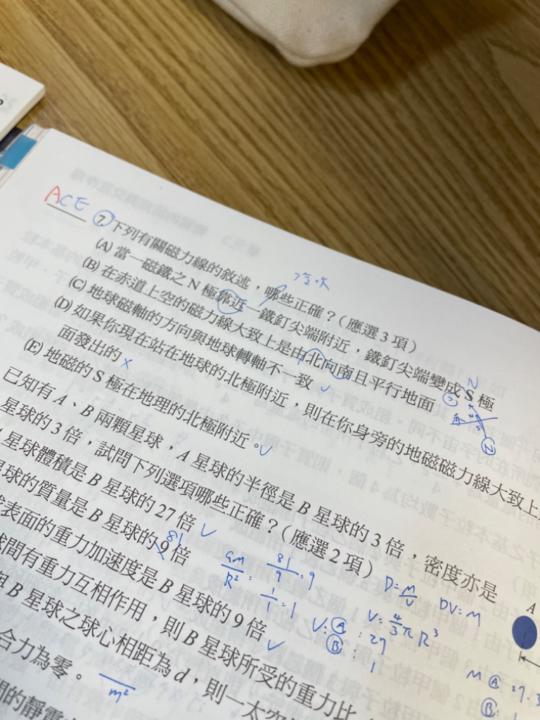 ACE
7. 下列有關磁力線的敘述，哪些正確？(應選 3 項)
(A) 當一磁鐵之 N 極靠近一鐵釘尖端附近，鐵釘尖端變成 S 極
(B) 在赤道上空的磁力線大致上是由北向南且平行地面
(C) 地球磁軸的方向與地球轉軸不一致
(D) 如果你現在站在地球的北極附近，則在你身旁的地磁磁力線大致上
面發出的
(E) 地磁的 S 極在地理的北極附近。
已知有 A、B 兩顆星球，A 星球的半徑是 B 星球的 3 倍，密度亦是
星球的 3 倍，試問下列選項哪些正確？(應選 2 項)
星球體積是 B 星球的 27 倍
星球的質量是 B 星球的 9 倍
81
表面的重力加速度是 B 星球的 9 倍
間有重力互相作用，則 B 星球所受的重力比
B 星球之球心相距為 d，則一太空
合力為零。
GM
R²
81
9
= 9
1
1
= 1
D = M
V
DV = M
V = 4
3
π R³
V: A : 27
B : 1
m²
M A
B
A